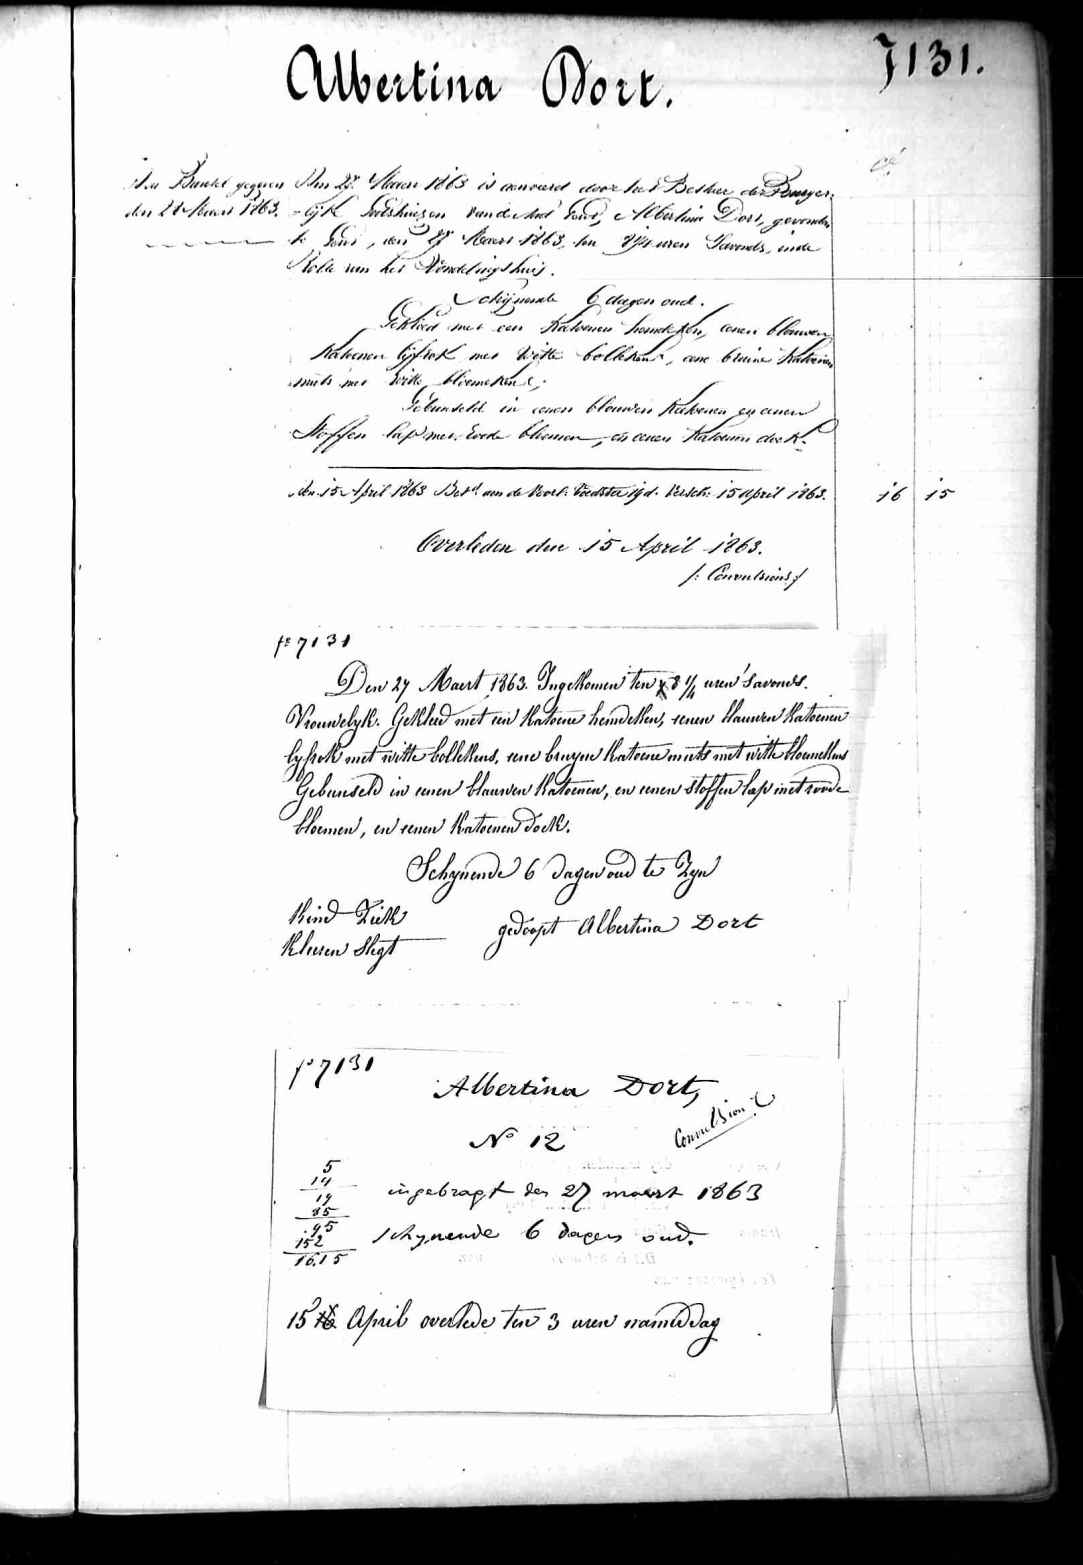 7131.
Albertina Dort.
Den 27 Maert 1863 is aenveerd door het Bestier der Burger-
lijk Godshuizen van de stad Gend, Albertina Dort, gevonden
te Gend, den 27 Maert 1863, ten 8 1/4 uren 'savonds, in de
Rolle van het Vondelingshuis.
Schijnende 6 dagen oud.
Gekleed met een katoenen hemdeken, eenen blauwen
katoenen lijfrok met witte bollekens, eene bruine katoenen
muts met witte bloemekens,
Gebunseld in eenen blauwen katoenen en eenen
stoffen lap met roode bloemen, en eenen katoenen doek.
den 15 April 1863 Bet.d aen de Voed: 19 d. Versch. 15 april 1863. 16 15
Overleden den 15 April 1863.
/: Convulsions :/
f° 7131
Den 27 Maert 1863. Ingekomen ten 8 1/4 uren 'savonds.
Vrouwelyk. Gekleed met een katoene hemdeken, eenen blauwen katoenen
lyfrok met witte bollekens, eene bruyne katoene muts met witte bloemekens
Gebunseld in eenen blauwen katoenen, en eenen stoffen lap met roode
bloemen, en eenen katoenen doek.
Schynende 6 dagen oud te Zyn
Kind Ziek
gedoopt Albertina Dort
Kleeren slegt
f° 7131
Albertina Dort,
Convulsion
N° 12
5
14
19
85
95
152
16.15
ingebragt den 27 maert 1863
schynende 6 dagen oud.
15 April overlede ten 3 uren namiddag